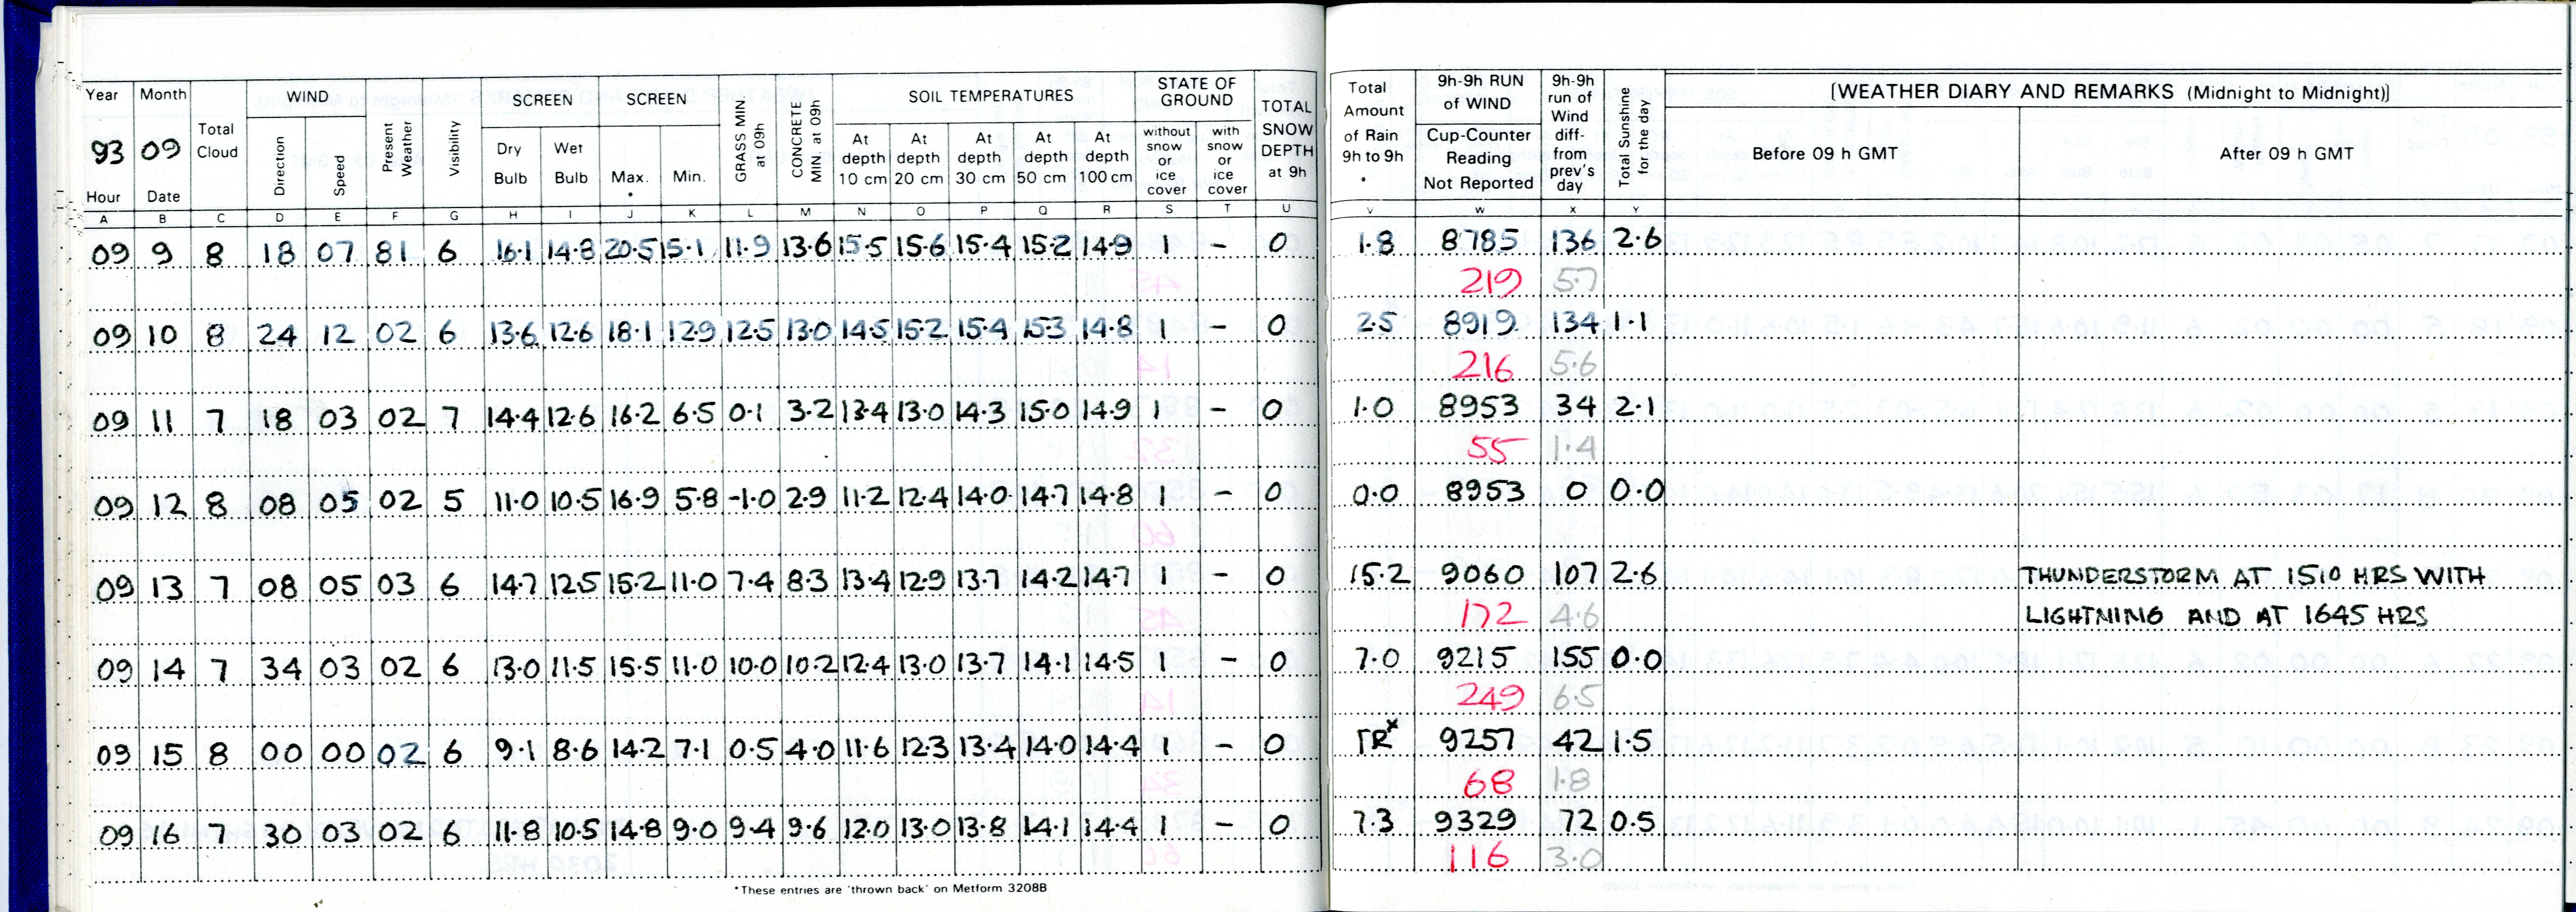 Year Month Total Cloud WIND Present Weather Visibility SCREEN SCREEN GRASS MIN. at 09h CONCRETE MIN. at 09h SOIL TEMPERATURES STATE OF GROUND TOTAL SNOW DEPTH at 9h Total Amount of Rain 9h to 9h * 9h-9h RUN of WIND 9h-9h run of Wind diff- from prev's day Total Sunshine for the day [WEATHER DIARY AND REMARKS (Midnight to Midnight)]
93 09 Direction Speed Dry Bulb Wet Bulb Max. * Min. At depth 10 cm At depth 20 cm At depth 30 cm At depth 50 cm At depth 100 cm without snow or ice cover with snow or ice cover Cup-Counter Reading Not Reported Before 09 h GMT After 09 h GMT
Hour Date
A B C D E F G H I J K L M N O P Q R S T U V W X Y
09 9 8 18 07 81 6 16.1 14.8 20.5 15.1 11.9 13.6 15.5 15.6 15.4 15.2 14.9 1 - 0 1.8 8785 136 2.6
219 5.7
09 10 8 24 12 02 6 13.6 12.6 18.1 12.9 12.5 13.0 14.5 15.2 15.4 15.3 14.8 1 - 0 2.5 8919 134 1.1
216 5.6
09 11 7 18 03 02 7 14.4 12.6 16.2 6.5 0.1 3.2 13.4 13.0 14.3 15.0 14.9 1 - 0 1.0 8953 34 2.1
55 1.4
09 12 8 08 05 02 5 11.0 10.5 16.9 5.8 -1.0 2.9 11.2 12.4 14.0 14.7 14.8 1 - 0 0.0 8953 0 0.0
09 13 7 08 05 03 6 14.7 12.5 15.2 11.0 7.4 8.3 13.4 12.9 13.7 14.2 14.7 1 - 0 15.2 9060 107 2.6 THUNDERSTORM AT 1510 HRS WITH
172 4.6 LIGHTNING AND AT 1645 HRS
09 14 7 34 03 02 6 13.0 11.5 15.5 11.0 10.0 10.2 12.4 13.0 13.7 14.1 14.5 1 - 0 7.0 9215 155 0.0
249 6.5
09 15 8 00 00 02 6 9.1 8.6 14.2 7.1 0.5 4.0 11.6 12.3 13.4 14.0 14.4 1 - 0 TRˣ 9257 42 1.5
68 1.8
09 16 7 30 03 02 6 11.8 10.5 14.8 9.0 9.4 9.6 12.0 13.0 13.8 14.1 14.4 1 - 0 7.3 9329 72 0.5
116 3.0
*These entries are 'thrown back' on Metform 3208B